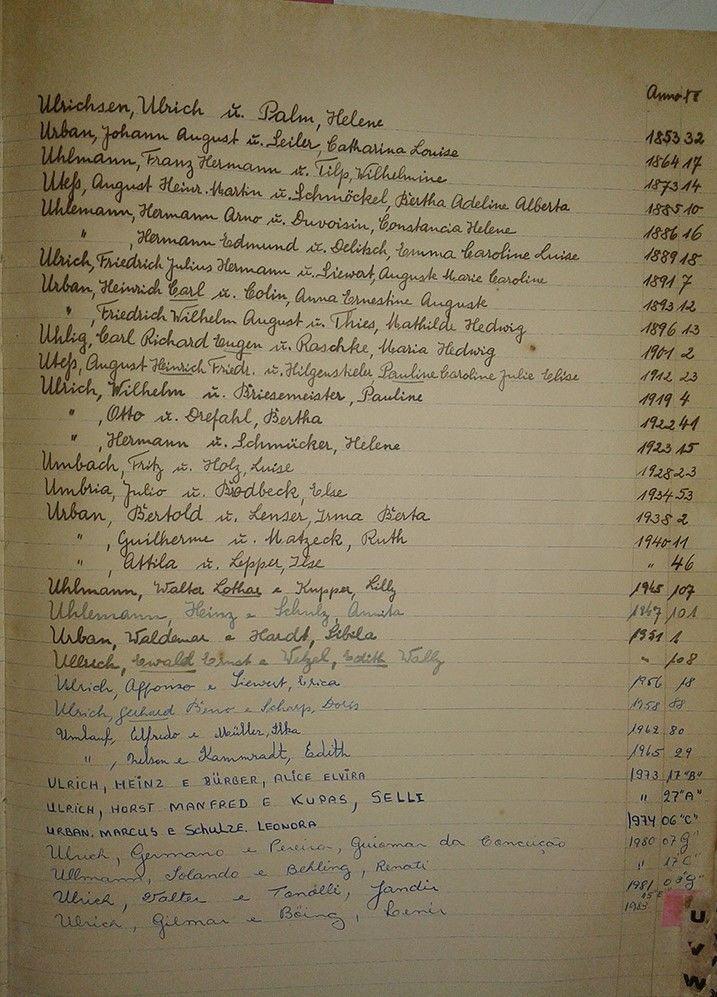 Anno
Ulrichsen, Ulrich u. Palm, Helene 1853 32
Urban, Johann August u. Seiler, Catharina Louise 1864 17
Uhlmann, Franz Hermann u. Tilp, Wilhelmine 1873 14
Uteß, August Heinr. Martin u. Schmöckel, Bertha Adeline Alberta 1885 10
Uhlemann, Hermann Arno u. Duvoisin, Constancia Helene 1886 16
" , Hermann Edmund u. Delitsch, Emma Caroline Luise 1889 18
Ulrich, Friedrich Julius Hermann u. Siewert, Auguste Marie Caroline 1891 7
Urban, Heinrich Carl u. Colin, Anna Ernestine Auguste 1893 12
" , Friedrich Wilhelm August u. Thies, Mathilde Hedwig 1896 13
Uhlig, Carl Richard Eugen u. Raschke, Maria Hedwig 1901 2
Uteß, August Heinrich Friedr. u. Hilgenstieler Pauline Caroline Julie Elise 1912 23
Ulrich, Wilhelm u. Briesemeister, Pauline 1919 4
" , Otto u. Drefahl, Bertha 1922 41
" , Hermann u. Schmücker, Helene 1923 15
Umbach, Fritz u. Holz, Luise 1928 23
Umbria, Julio u. Brodbeck, Else 1934 53
Urban, Bertold u. Lenser, Irma Berta 1938 2
" , Guilherme u. Matzeck, Ruth 1940 11
" , Attila u. Lepper, Ilse " 46
Uhlmann, Walter Lothar e Kupper, Lilly 1945 107
Uhlemann, Heinz e Schulz, Annita 1947 101
Urban, Waldemar e Hardt, Sibila 1951 1
Ullrich, Ewald Ernst e Wetzel, Edith Wally " 108
Ulrich, Affonso e Siewert, Erica 1956 18
Ulrich, Gerhard Beno e Scharp, Doris 1958 88
Umlauf, Elfredo e Müller, Ilka 1962 80
" , Nelson e Kammradt, Edith 1965 29
ULRICH, HEINZ E BÜRGER, ALICE ELVIRA 1973 17 "B"
ULRICH, HORST MANFRED E KUPAS, SELLI " 27 "A"
URBAN. MARCUS E SCHULZE. LEONORA 1974 06 "C"
Ulrich, Germano e Pereira, Guiomar da Conceição 1980 07 G"
Ullmann, Solando e Behling, Renati " 17 C"
Ulrich, Walter e Tonolli, Jandir 1981 03 "G"
Ulrich, Gilmar e Böing, Lenir 1983 15 E
U
V
W